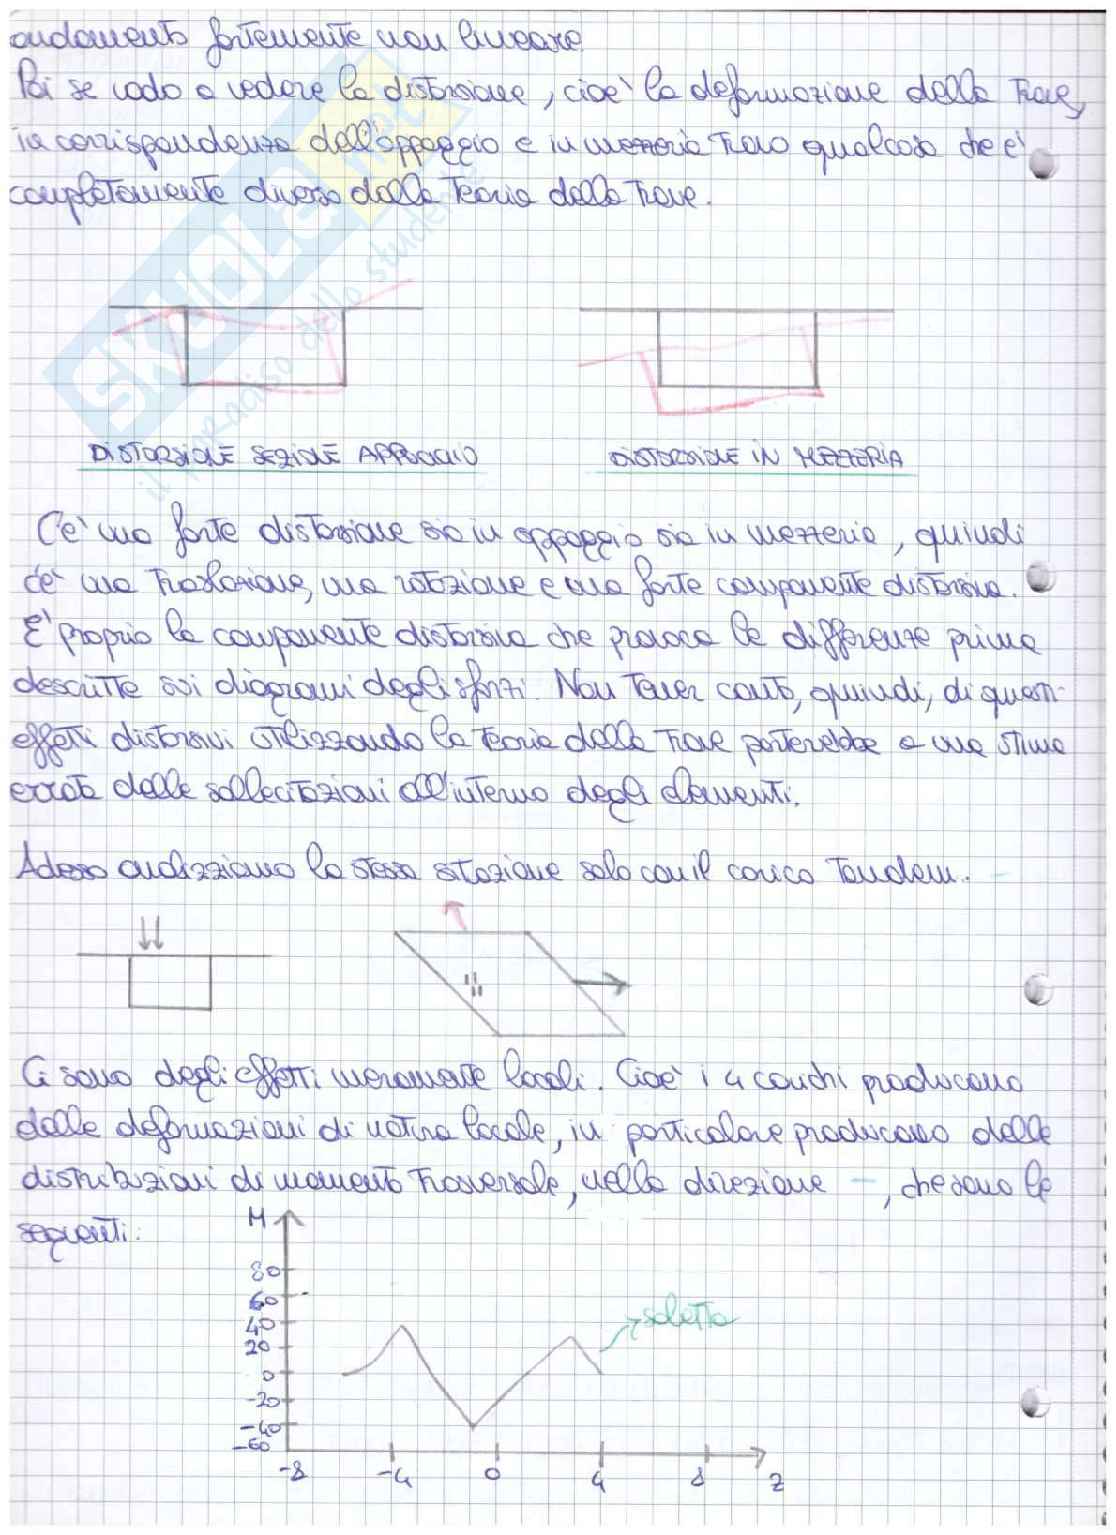 andamento fortemente non lineare
Poi se vado a vedere la distorsione, cioè la deformazione della trave,
in corrispondenza dell'appoggio e in mezzeria trovo qualcosa che è
completamente diverso dalla teoria della trave.
SKUOLA.net
il paradiso dello studente
DISTORSIONE SEZIONE APPOGGIO
DISTORSIONE IN MEZZERIA
C'è una forte distorsione sia in appoggio sia in mezzeria, quindi
c'è una traslazione, una rotazione e una forte componente distorsiva.
E' proprio la componente distorsiva che provoca le differenze prima
descritte sui diagrammi degli sforzi. Non tener conto, quindi, di questi
effetti distorsivi utilizzando la teoria della trave porterebbe a una stima
errata delle sollecitazioni all'interno degli elementi.
Adesso analizziamo la stessa situazione solo con il carico Tandem.
Ci sono degli effetti meramente locali. Cioè i 4 carichi producono
delle deformazioni di natura locale, in particolare producono delle
distribuzioni di momento trasversale, nella direzione –, che sono le
seguenti:
M
80
60
40
20
0
-20
-40
-60
soletta
-8 -4 0 4 8 z